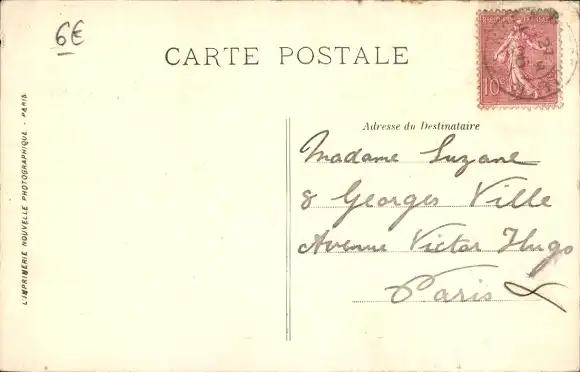 6€
CARTE POSTALE
10c
Adresse du Destinataire
Madame Suzane
8 Georges Ville
Avenue Victor Hugo
Paris
L'IMPRIMERIE NOUVELLE PHOTOGRAPHIQUE - PARIS